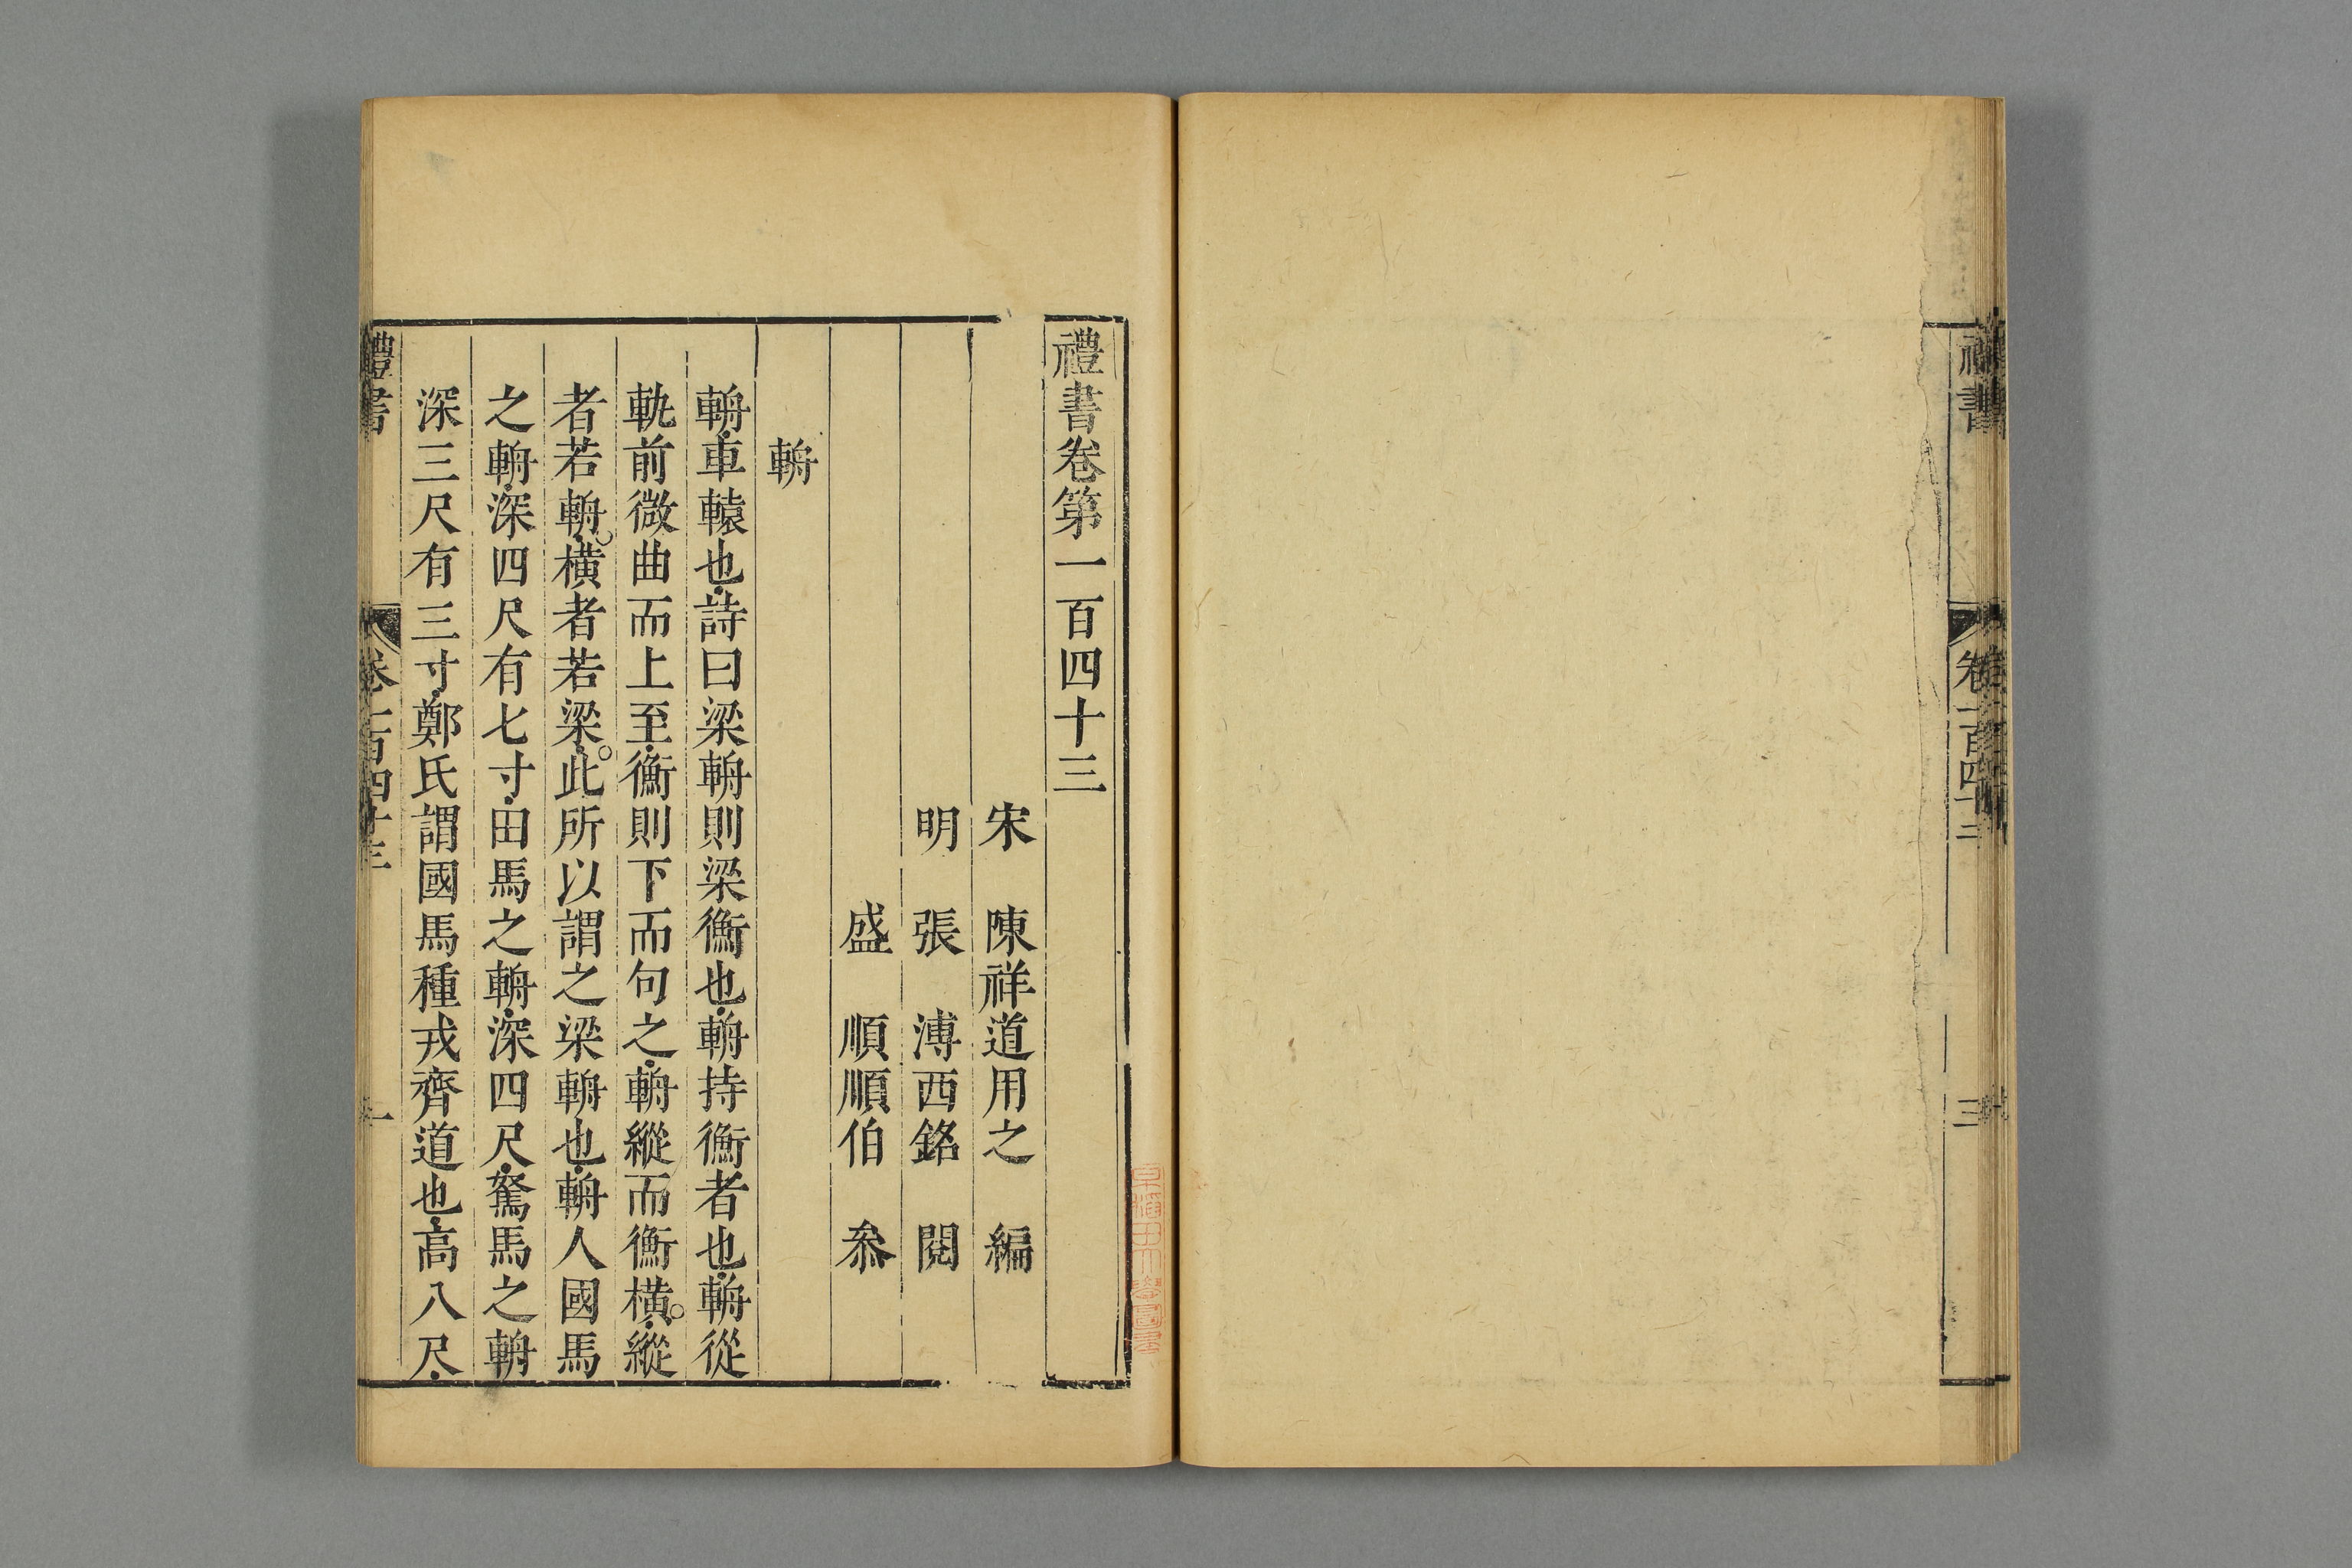 禮書
卷一百四十二
三
禮書卷第一百四十三
宋 陳祥道用之 編
明 張 溥西銘 閱
盛 順順伯 叅
輈
輈車轅也詩曰梁輈則梁衡也輈持衡者也輈從
軌前微曲而上至衡則下而句之輈縱而衡橫縱
者若輈橫者若梁此所以謂之梁輈也輈人國馬
之輈深四尺有七寸田馬之輈深四尺駑馬之輈
深三尺有三寸鄭氏謂國馬種戎齊道也高八尺
禮書
卷一百四十三
一
早稻田大學圖書